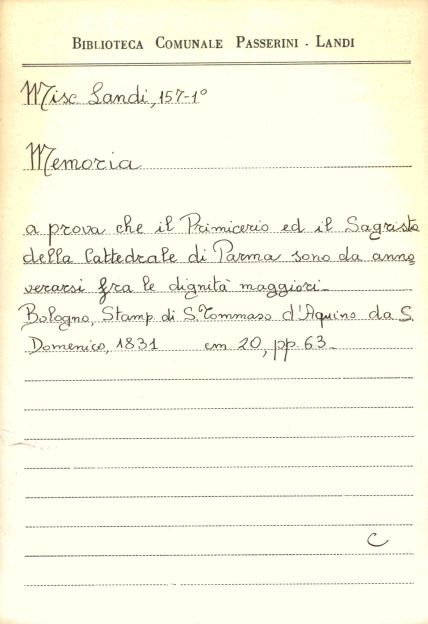 BIBLIOTECA COMUNALE PASSERINI - LANDI
Misc Landi, 157-1°
Memoria
a prova che il Primicerio ed il Sagrista
della Cattedrale di Parma sono da anno
verarsi fra le dignità maggiori.
Bologna, Stamp. di S. Tommaso d'Aquino da S.
Domenico, 1831 cm 20, pp. 63.
C